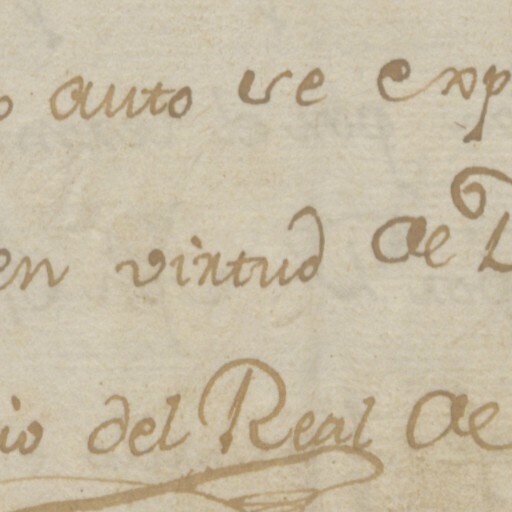 o auto se exp
en virtud de
io del Real de